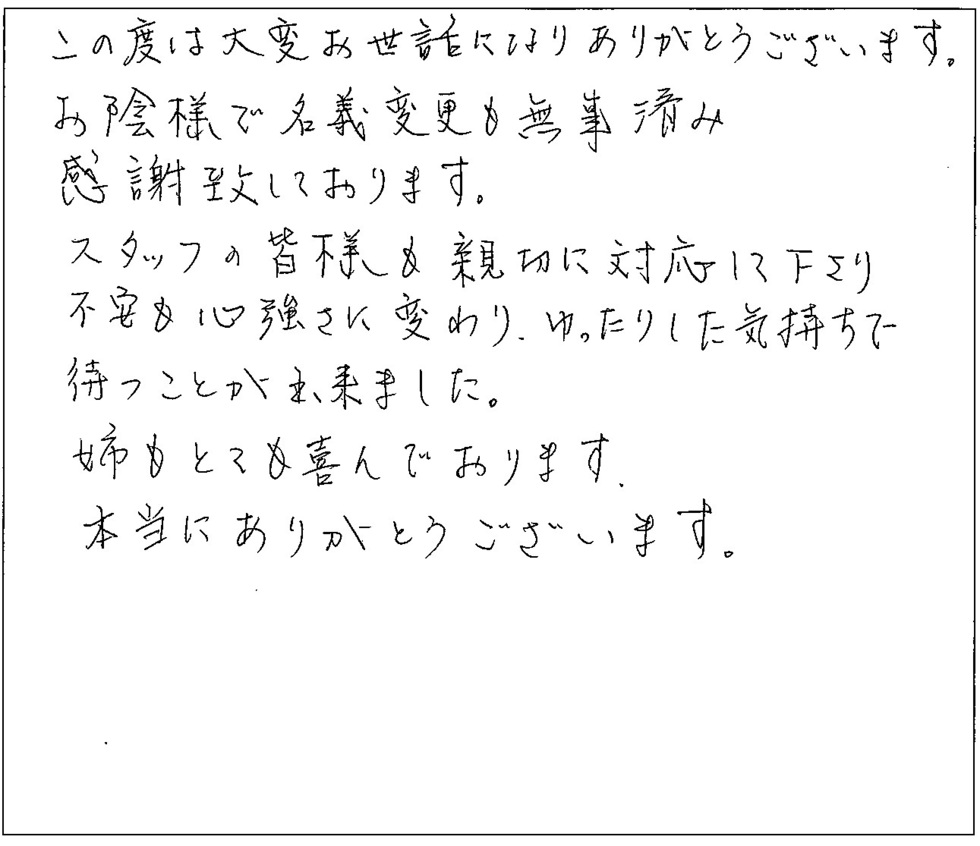 この度は大変お世話になりありがとうございます。
お陰様で名義変更も無事済み
感謝致しております。
スタッフの皆様も親切に対応して下さり
不安も心強さに変わり、ゆったりした気持ちで
待つことが出来ました。
姉もとても喜んでおります。
本当にありがとうございます。